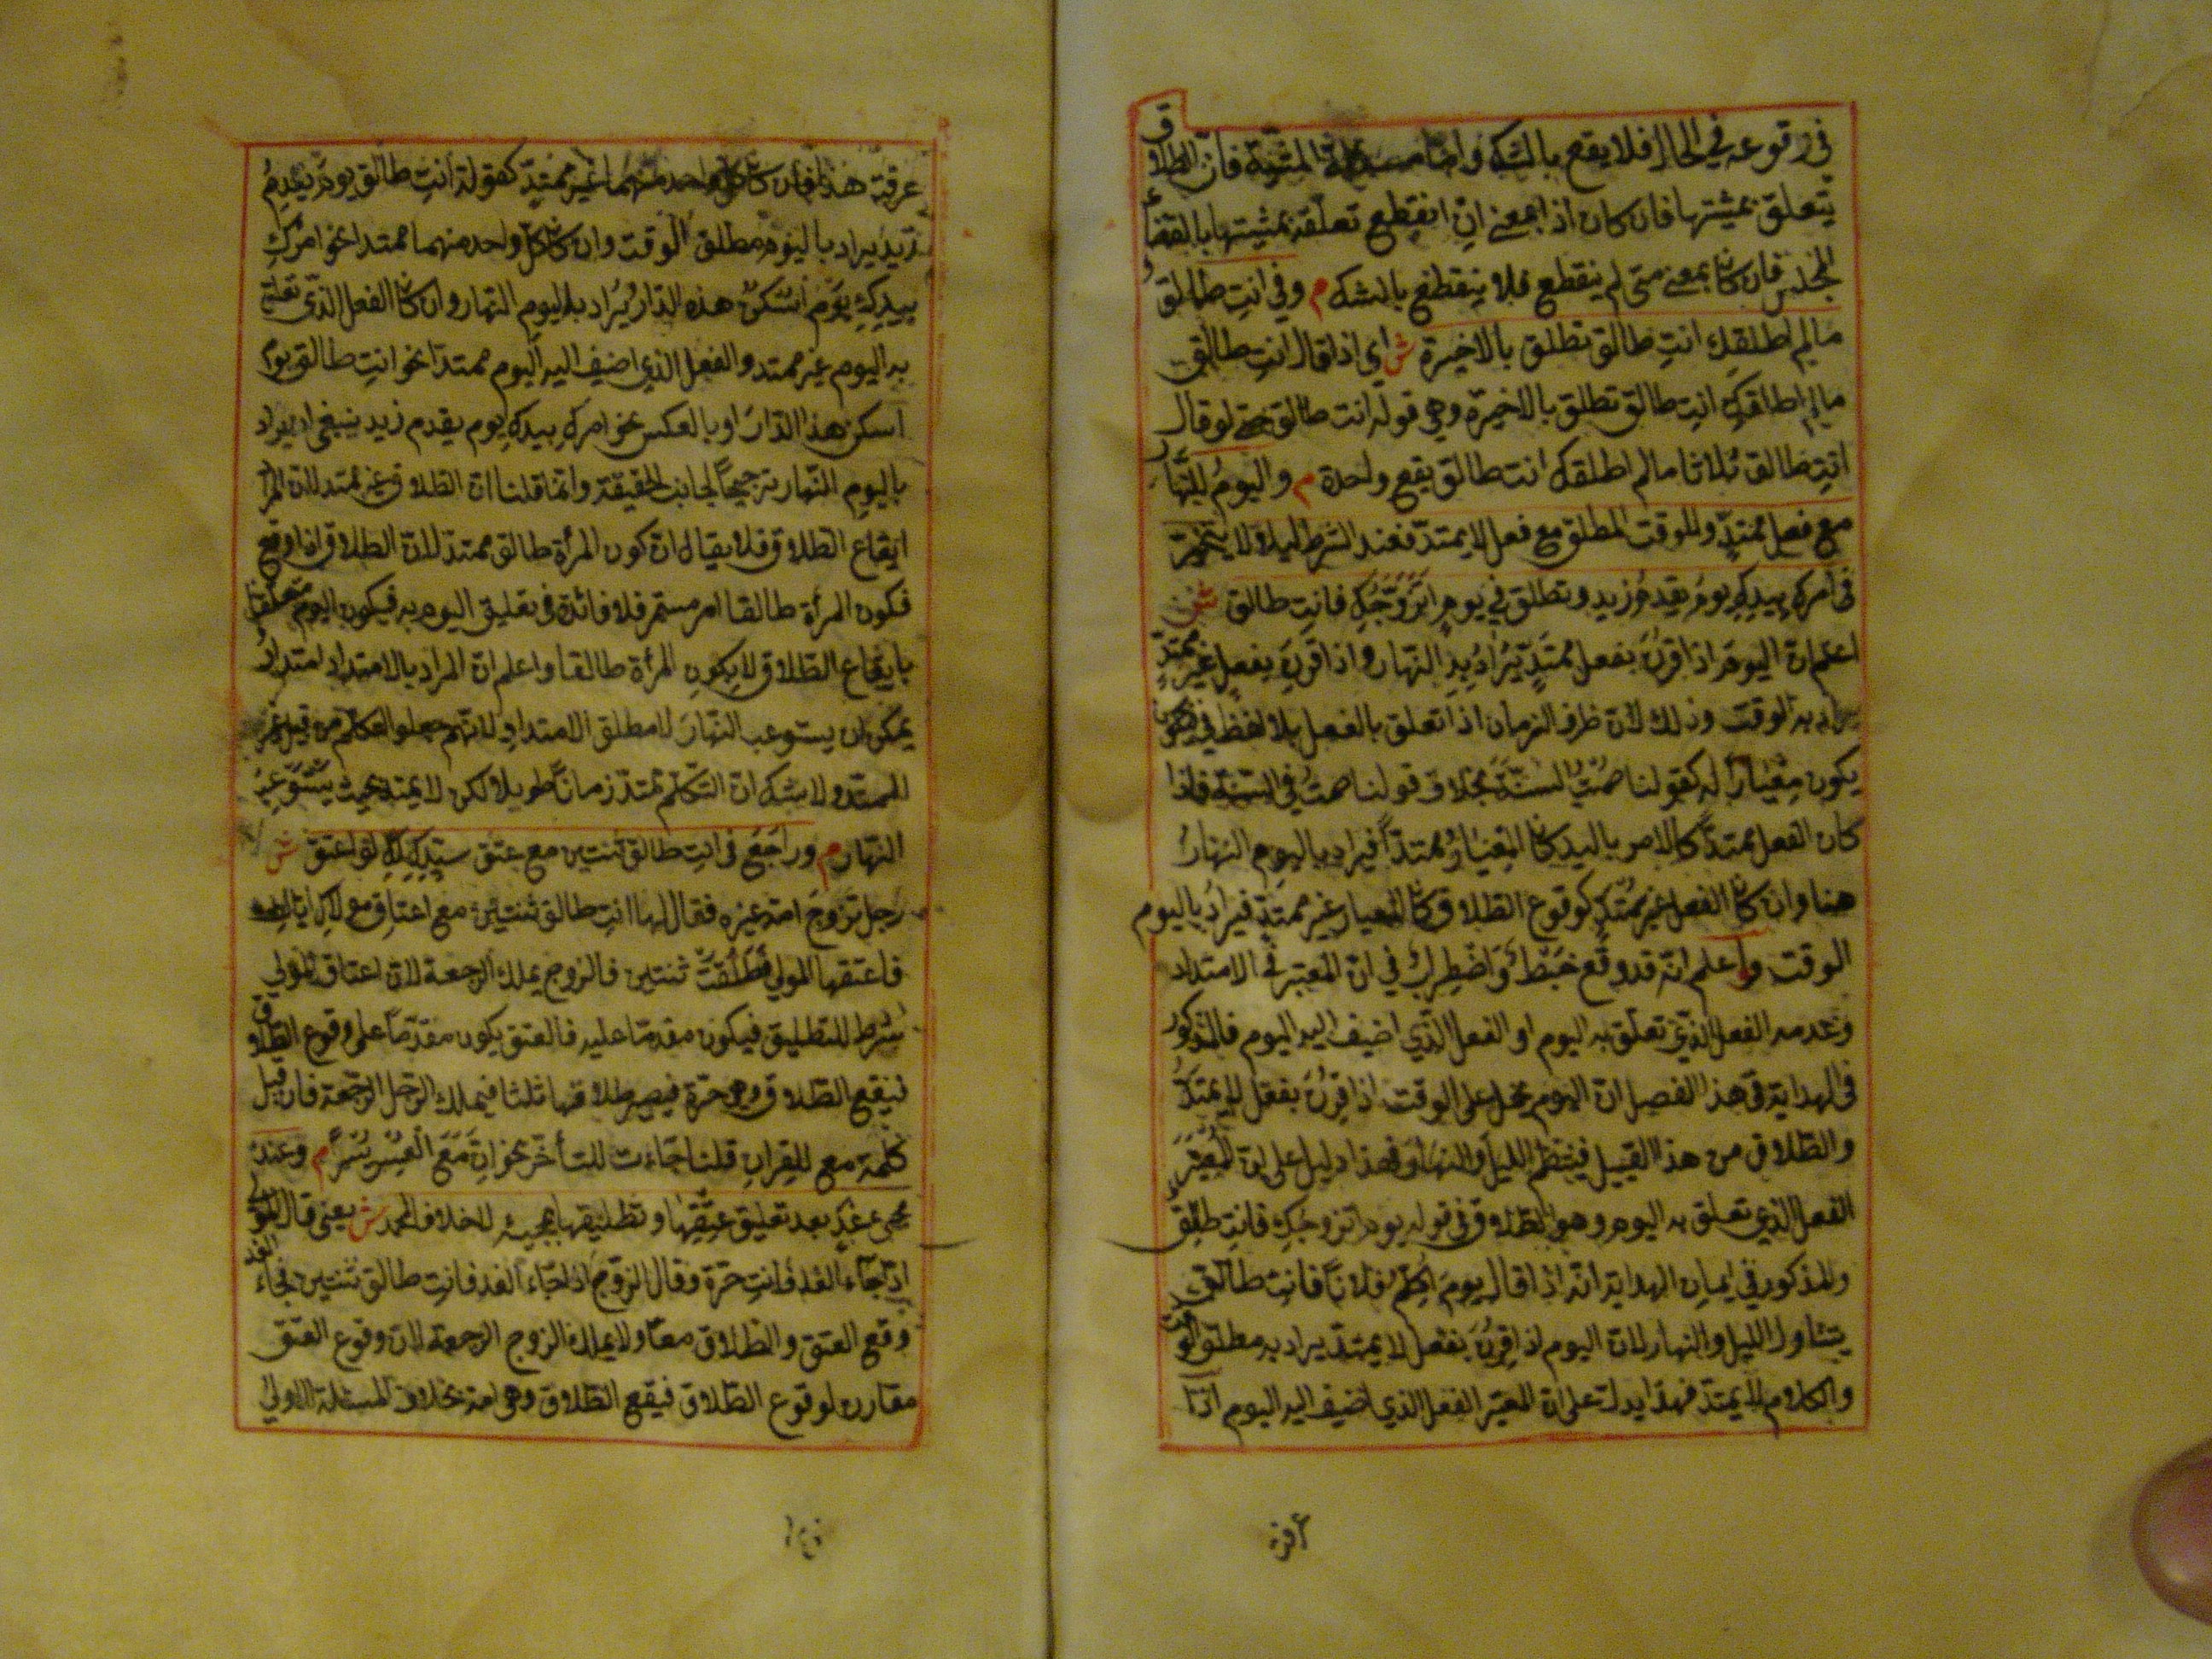 في وقوعه في الحال فلا يقع بالشك واما مسئلة المشية فان الطلاق
يتعلق بمشيتها فان كان اذا بمعنى ان انقطع تعلقه بمشيتها بانقضاء
المجلس فان كان بمعنى متى لم ينقطع فلا ينقطع بالشك م وفي انتِ طالق
مالم اطلقكِ انتِ طالق تطلق بالاخيرة ش اي اذا قال انتِ طالق
مالم اطلقكِ انتِ طالق تطلق بالاخيرة وهي قوله انت طالق حتى لو قال
انتِ طالق ثلاثا مالم اطلقك انت طالق يقع واحدة م واليومُ للنهار
مع فعل ممتدٍّ وللوقت المطلق مع فعل لا يمتدّ فعند الشرط ليلا لا يتخيّر
في امركِ بيدكِ يومَ يقدمُ زيد وتطلق في يومِ اتزوّجُكِ فانتِ طالق ش
اعلم انّ اليومَ اذا قرنَ بفعل ممتدٍّ يُرادُ بهِ النهار واذا قرنَ بفعلٍ غيرِ ممتدٍّ
يراد به الوقت وذلك لانّ ظرف الزمان اذا تعلق بالفعل بلا لفظ في يكون
يكون معيارًا له كقولنا صمتُ السنةَ بخلاف قولنا صمتُ في السنة فاذا
كان الفعل ممتدًّا كالامر باليد كان المعيارُ ممتدًّا فيراد باليومِ النهارُ
هنا وان كان الفعل غيرَ ممتدٍّ كوقوع الطلاق كان المعيار غير ممتدٍّ فيرادُ باليوم
الوقت واعلم انّه قد وقَعَ خبطٌ واضطرابٌ في انّ المعتبر في الامتداد
وعدمه الفعل الذي تعلّق به اليوم او الفعل الذي اضيف اليه اليوم فالمذكور
في الهداية في هذا الفصل انّ اليوم يحمل على الوقت اذا قرنَ بفعل لا يمتدُّ
والطلاق من هذا القبيل فينتظم الليل والنهار فهذا دليل على انّ المعتبَرَ
الفعل الذي تعلق به اليوم وهو الطلاق في قوله يوم اتزوجكِ فانتِ طالق
والمذكور في ايمان الهداية انّه اذا قال يومَ اكلّمُ فلانًا فانت طالق
يتناول الليل والنهار لانّ اليوم اذا قرنَ بفعل لا يمتدّ يراد به مطلق الوقت
والكلام لا يمتدّ فهذا يدل على انّ المعتبر الفعل الذي اضيف اليه اليوم اذا
عرفتَ هذا فان كان كل واحد منهما غير ممتدٍّ كقوله انتِ طالق يوم يقدمُ
زيد يراد باليوم مطلق الوقت وان كان كلّ واحد منهما ممتدا نحو امركِ
بيدكِ يومَ اسكنُ هذه الدّار يُرادُ باليوم النهار وان كان الفعل الذي تعلق
به اليوم غير ممتد والفعل الذي اضيف اليه اليوم ممتدا نحو انتِ طالق يومَ
اسكن هذا الدّارَ او بالعكس نحو امركِ بيدكِ يوم يقدم زيد ينبغي ان يراد
باليوم النهار ترجيحًا لجانب الحقيقة وانما قلنا انّ الطلاق غير ممتد لانّ المراد
ايقاع الطلاق فلا يقال انّ كون المرأة طالق ممتدّ لانّ الطلاق اذا وقع
فكون المرأة طالقا امر مستمر فلا فائدة في تعليق اليوم به فيكون اليوم متعلقا
بايقاع الطلاق لا بكونِ المرأة طالقا واعلم انّ المراد بالامتداد امتدادٌ
يمكن ان يستوعب النهارَ لا مطلق الامتداد لانّهم جعلوا التكلّم من قبيل غير
الممتد ولا شك انّ التكلّم يمتدّ زمانًا طويلا لكن لا يمتدّ بحيث يستوعبُ
النهار م وراجَعَ في انتِ طالق ثنتين مع عتق سيّدِكِ لكِ لو اعتق ش
رجل تزوجَ امة غيره فقال لها انتِ طالق ثنتين مع اعتاق مولاكِ اياكِ
فاعتقها المولى طُلّقتْ ثنتين فالزوج يملك الرجعة لانّ اعتاق المولى
شرط للتطليق فيكون مقدمًا عليه فالعتق يكون مقدّمًا على وقوع الطلاق
فيقع الطلاق وهي حرّة فيصير طلاقها ثلثا فيملك الرجل الرجعة فان قيل
كلمة مع للقران قلنا جاءت للتأخر نحو انّ مَعَ العُسْرِ يُسْرًا م وعند
مجئ غدٍ بعد تعليق عتقِها وتطليقها بمجيئه لا خلافا لمحمد ش يعني قال المولى
اذا جاء الغد فانتِ حرّة وقال الزوج اذا جاء الغد فانتِ طالق ثنتين فجاء الغد
وقع العتق والطلاق معًا ولا يملك الزوج الرجعة لانّ وقوع العتق
مقارن لوقوع الطلاق فيقع الطلاق وهي امة بخلاف المسئلة الاولى